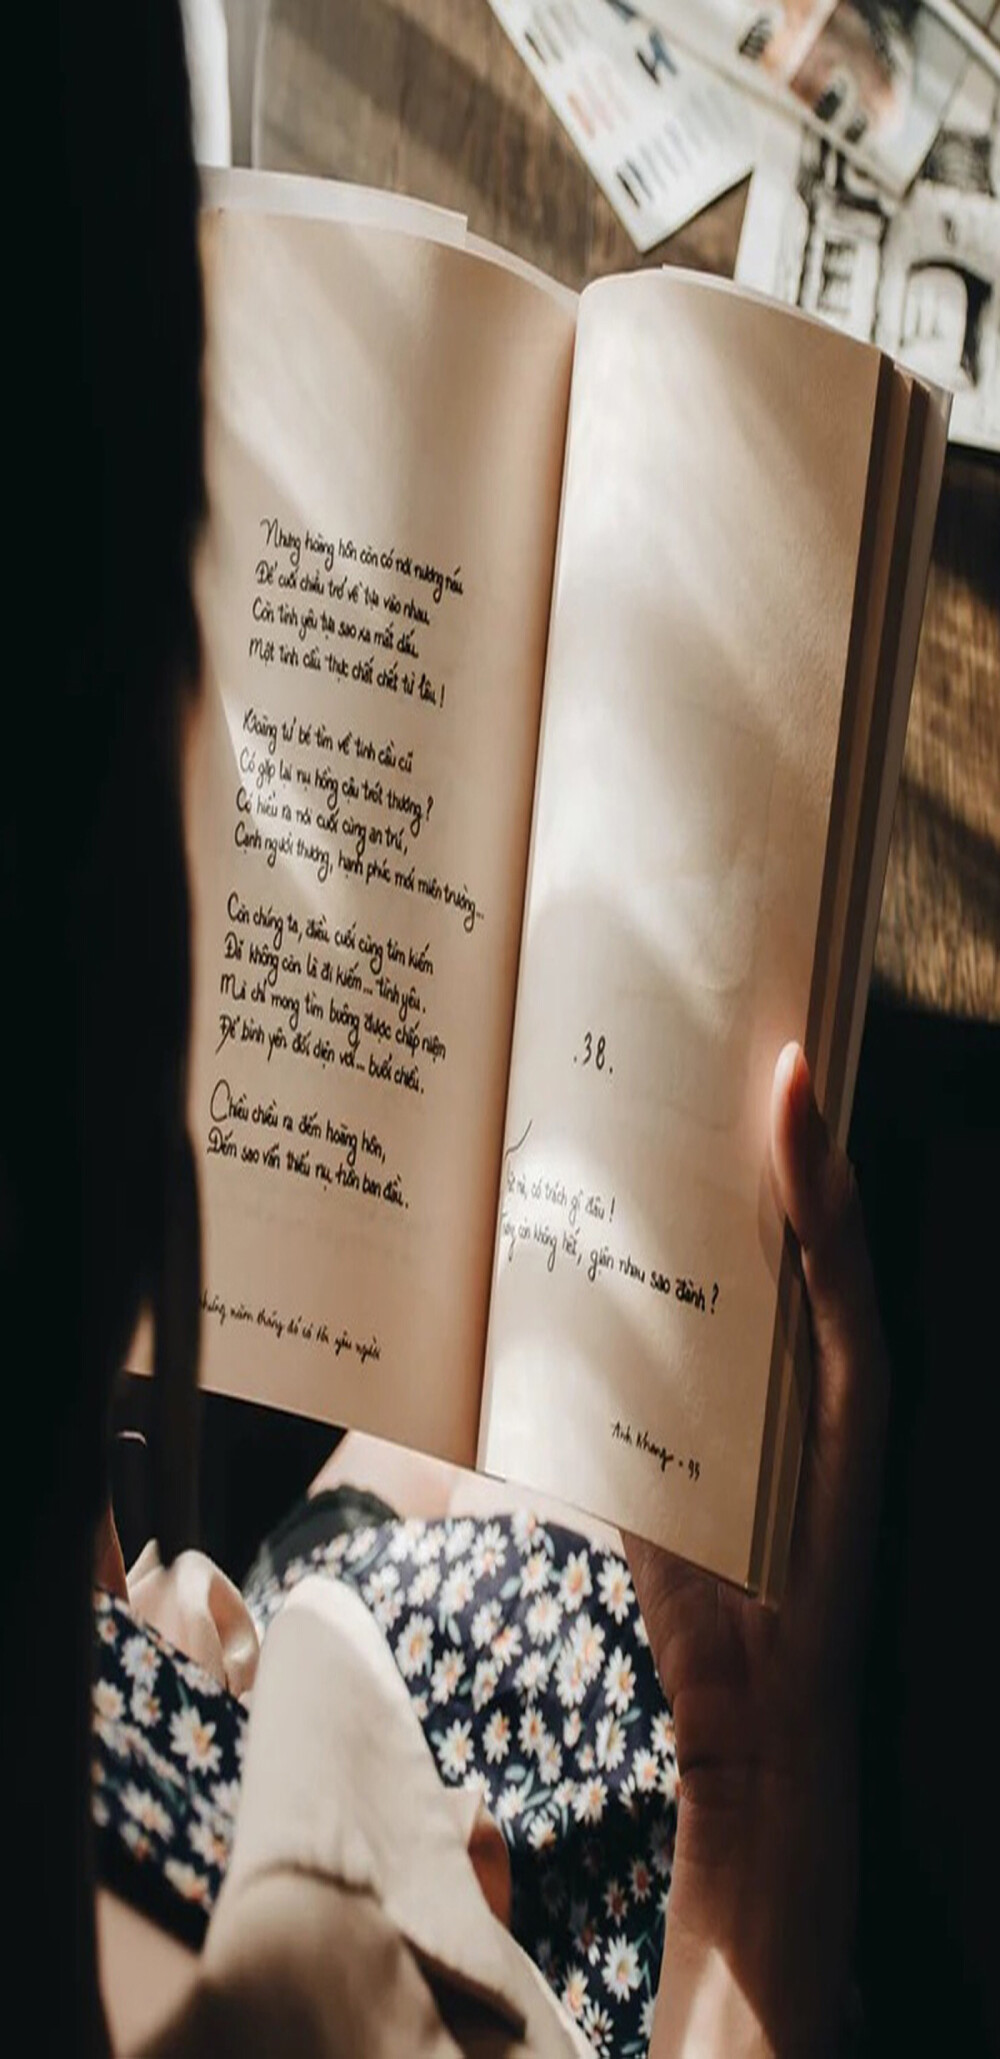 Nhưng hoàng hôn còn có nơi nương náu
Để cuối chiều trở về tựa vào nhau.
Còn tình yêu tựa sao xa mất dấu,
Một tinh cầu thực chất chết từ lâu!
Hoàng tử bé tìm về tinh cầu cũ
Có gặp lại nụ hồng cậu trót thương?
Có hiểu ra nơi cuối cùng an trú,
Cạnh người thương, hạnh phúc mới miên trường...
Còn chúng ta, điều cuối cùng tìm kiếm
Đã không còn là đi kiếm... tình yêu.
Mà chỉ mong tìm buông được chấp niệm
Để bình yên đối diện với... buổi chiều.
Chiều chiều ra đếm hoàng hôn,
Đếm sao vẫn thiếu nụ hôn ban đầu.
những năm tháng đó có tôi yêu người
.38.
nè, có trách gì đâu!
còn không hết, giận nhau sao đành?
Anh Khang - 95